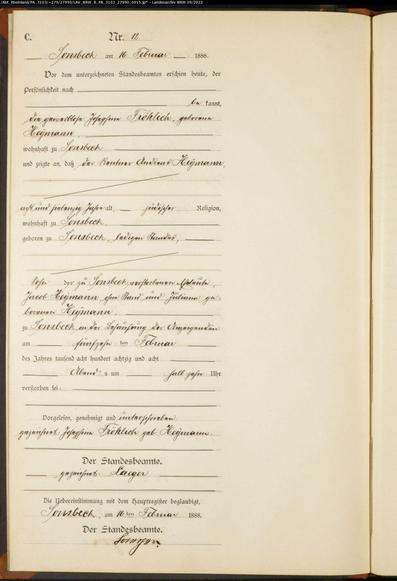 C.
Nr. 12
Sonsbeck am 16 Februar 1888.
Vor dem unterzeichneten Standesbeamten erschien heute, der
Persönlichkeit nach
be kannt,
die gewerblose Josephine Fröhlich, geborene
Hogmann,
wohnhaft zu Sonsbeck
und zeigte an, daß der Rentner Andreas Hogmann,
acht und siebenzig Jahre alt, jüdischer Religion,
wohnhaft zu Sonsbeck,
geboren zu Sonsbeck, ledigen Standes,
Sohn der zu Sonsbeck verstorbenen Eheleute,
Jacob Hogmann, ohne Stand und Juliana ge
borenen Hogmann,
zu Sonsbeck in der Behausung der Anzeigenden
am fünfzehn ten Februar
des Jahres tausend acht hundert achtzig und acht
Abends um halb zehn Uhr
verstorben sei.
Vorgelesen, genehmigt und unterschrieben
gezeichnet Josephine Fröhlich geb. Hogmann.
Der Standesbeamte.
gezeichnet
Die Uebereinstimmung mit dem Hauptregister beglaubigt,
Sonsbeck, am 16ten Februar 1888.
Der Standesbeamte.